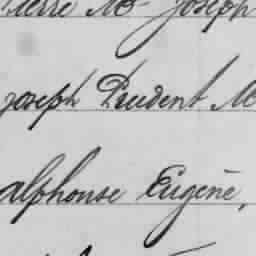 Pierre M. Joseph
Joseph Prudent M
Alphonse Eugène,